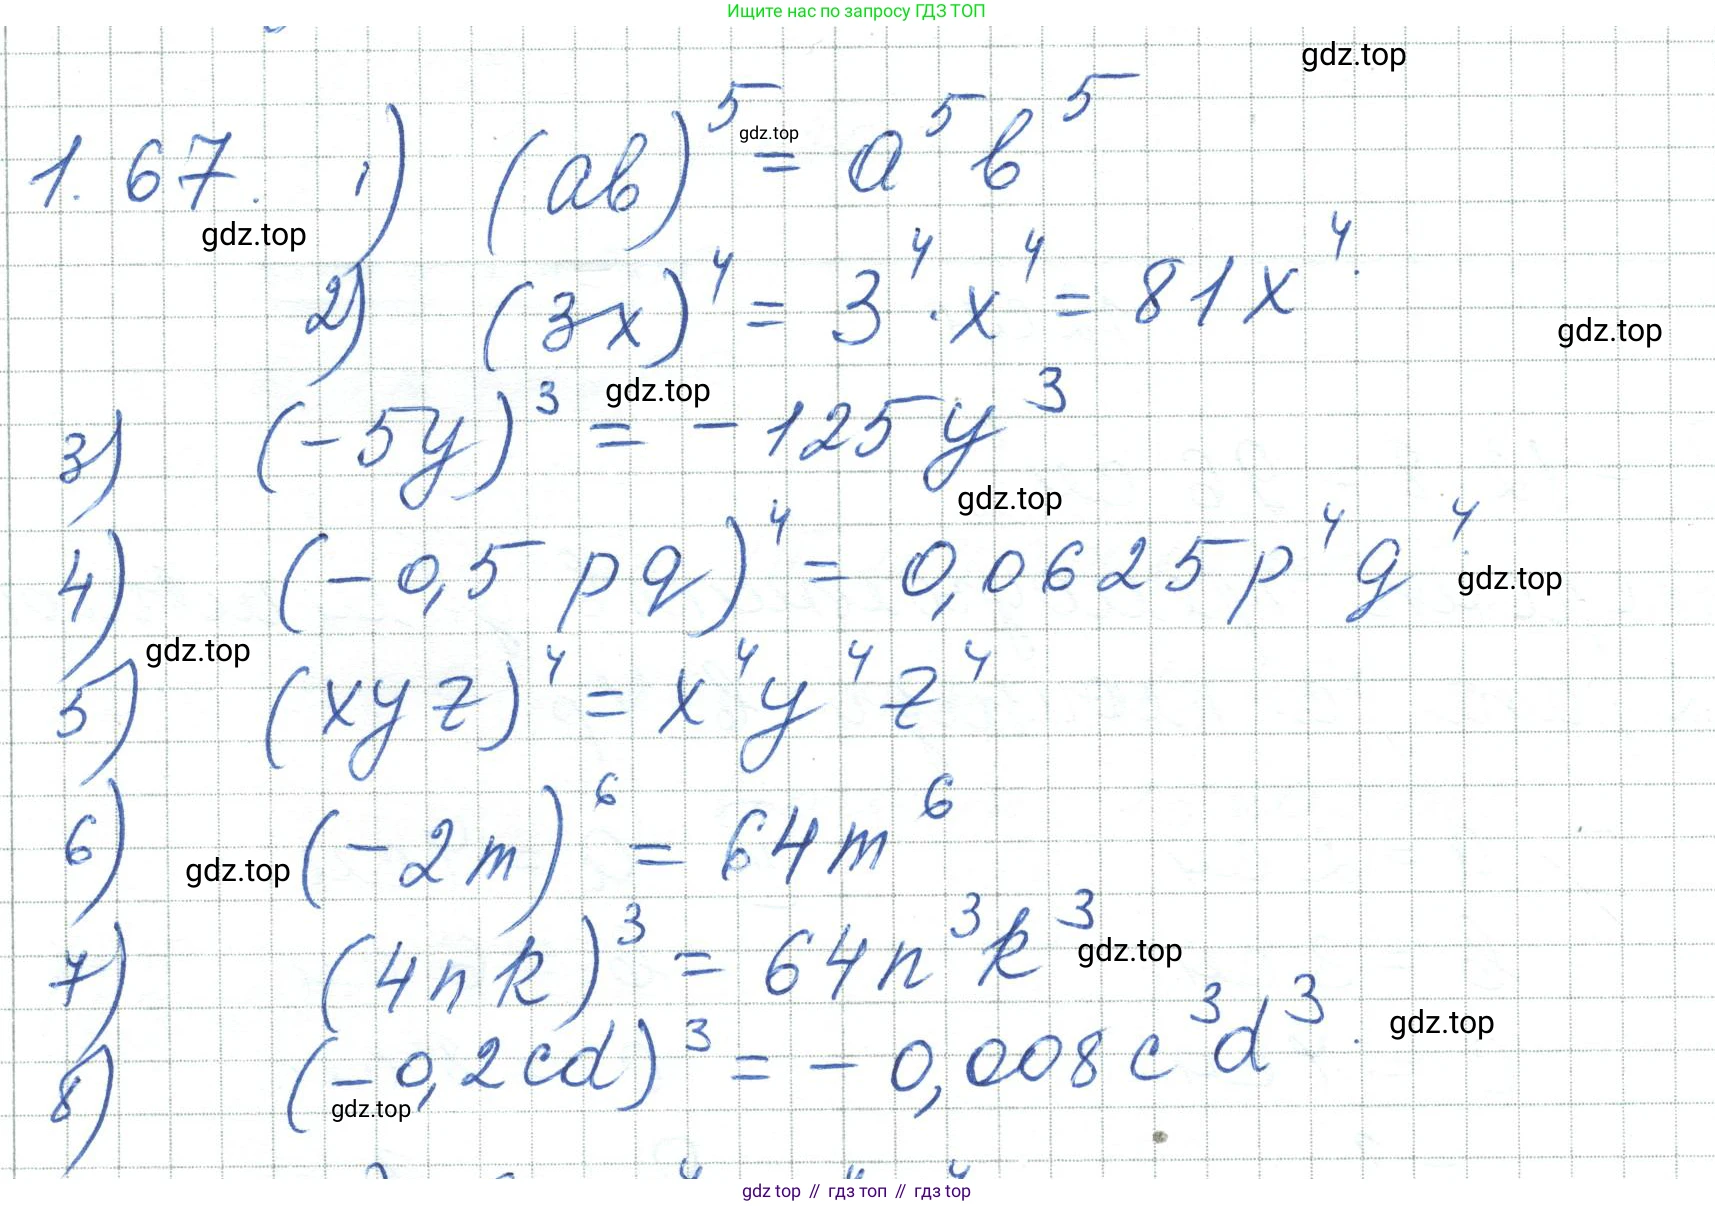 Ищите нас по запросу ГДЗ ТОП
gdz.top
1.67. 1) (ab)⁵ = a⁵b⁵
gdz.top
gdz.top
2) (3x)⁴ = 3⁴·x⁴ = 81x⁴.
gdz.top
gdz.top
3) (-5y)³ = -125y³
gdz.top
4) (-0,5pq)⁴ = 0,0625p⁴q⁴.
gdz.top
gdz.top
5) (xyz)⁴ = x⁴y⁴z⁴
6) (-2m)⁶ = 64m⁶
gdz.top
7) (4nk)³ = 64n³k³
gdz.top
8) (-0,2cd)³ = -0,008c³d³.
gdz.top
gdz.top
gdz top // гдз топ // gdz.top